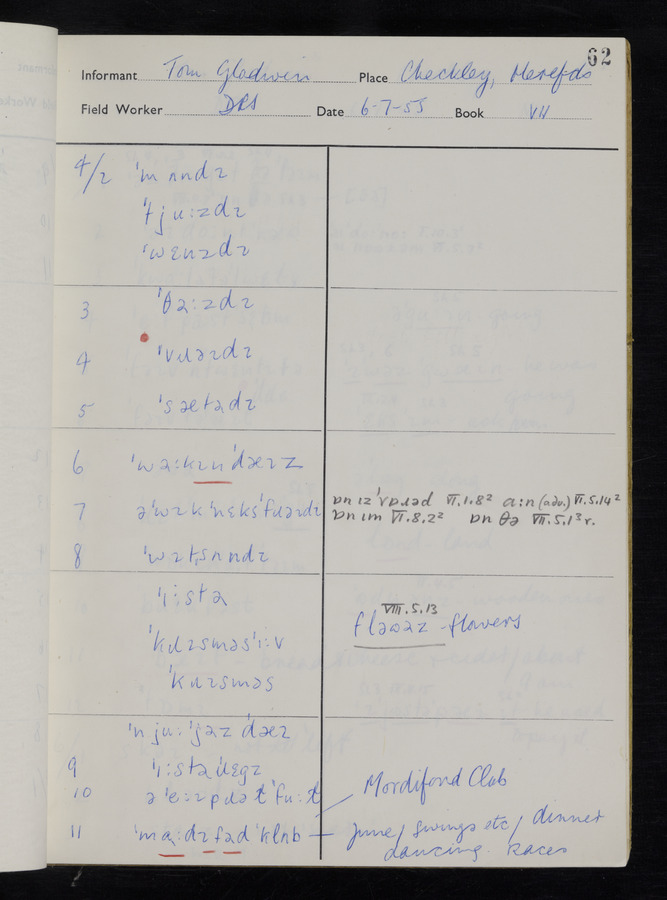 62
Informant Tom Gladwin Place Checkley, Herefds
Field Worker DRS Date 6-7-55 Book VII
4/2 ˈmʌndɪ
ˈtjuːzdɪ
ˈwɛnzdɪ
3 ˈθəːzdɪ
4 ˈvɹəɪdɪ
5 ˈsætədɪ
6 ˈwəːkɪn ˈdæɪz
7 əˈwɪk ˈnɛksˈfɹəɪdɪ ɒn ɪz ˈvɒɹəd VI.1.8² ɑːn (adv.) VI.5.14²
ɒn ɪm VI.8.2² ɒn θə VII.5.1³r.
8 ˈwɪtsʌndɪ
ˈiːstə VIII.5.13
ˈkɹɪsməsˈiːv flaʊəz - flowers
ˈkɹɪsməs
ˈnjuːˈjəz ˈdæɪ
9 ˈiːstəˈɛgz
10 Mordiford Club
11 ˈmɑːdɪfəd ˈklʌb June / swings etc / dinner
dancing races